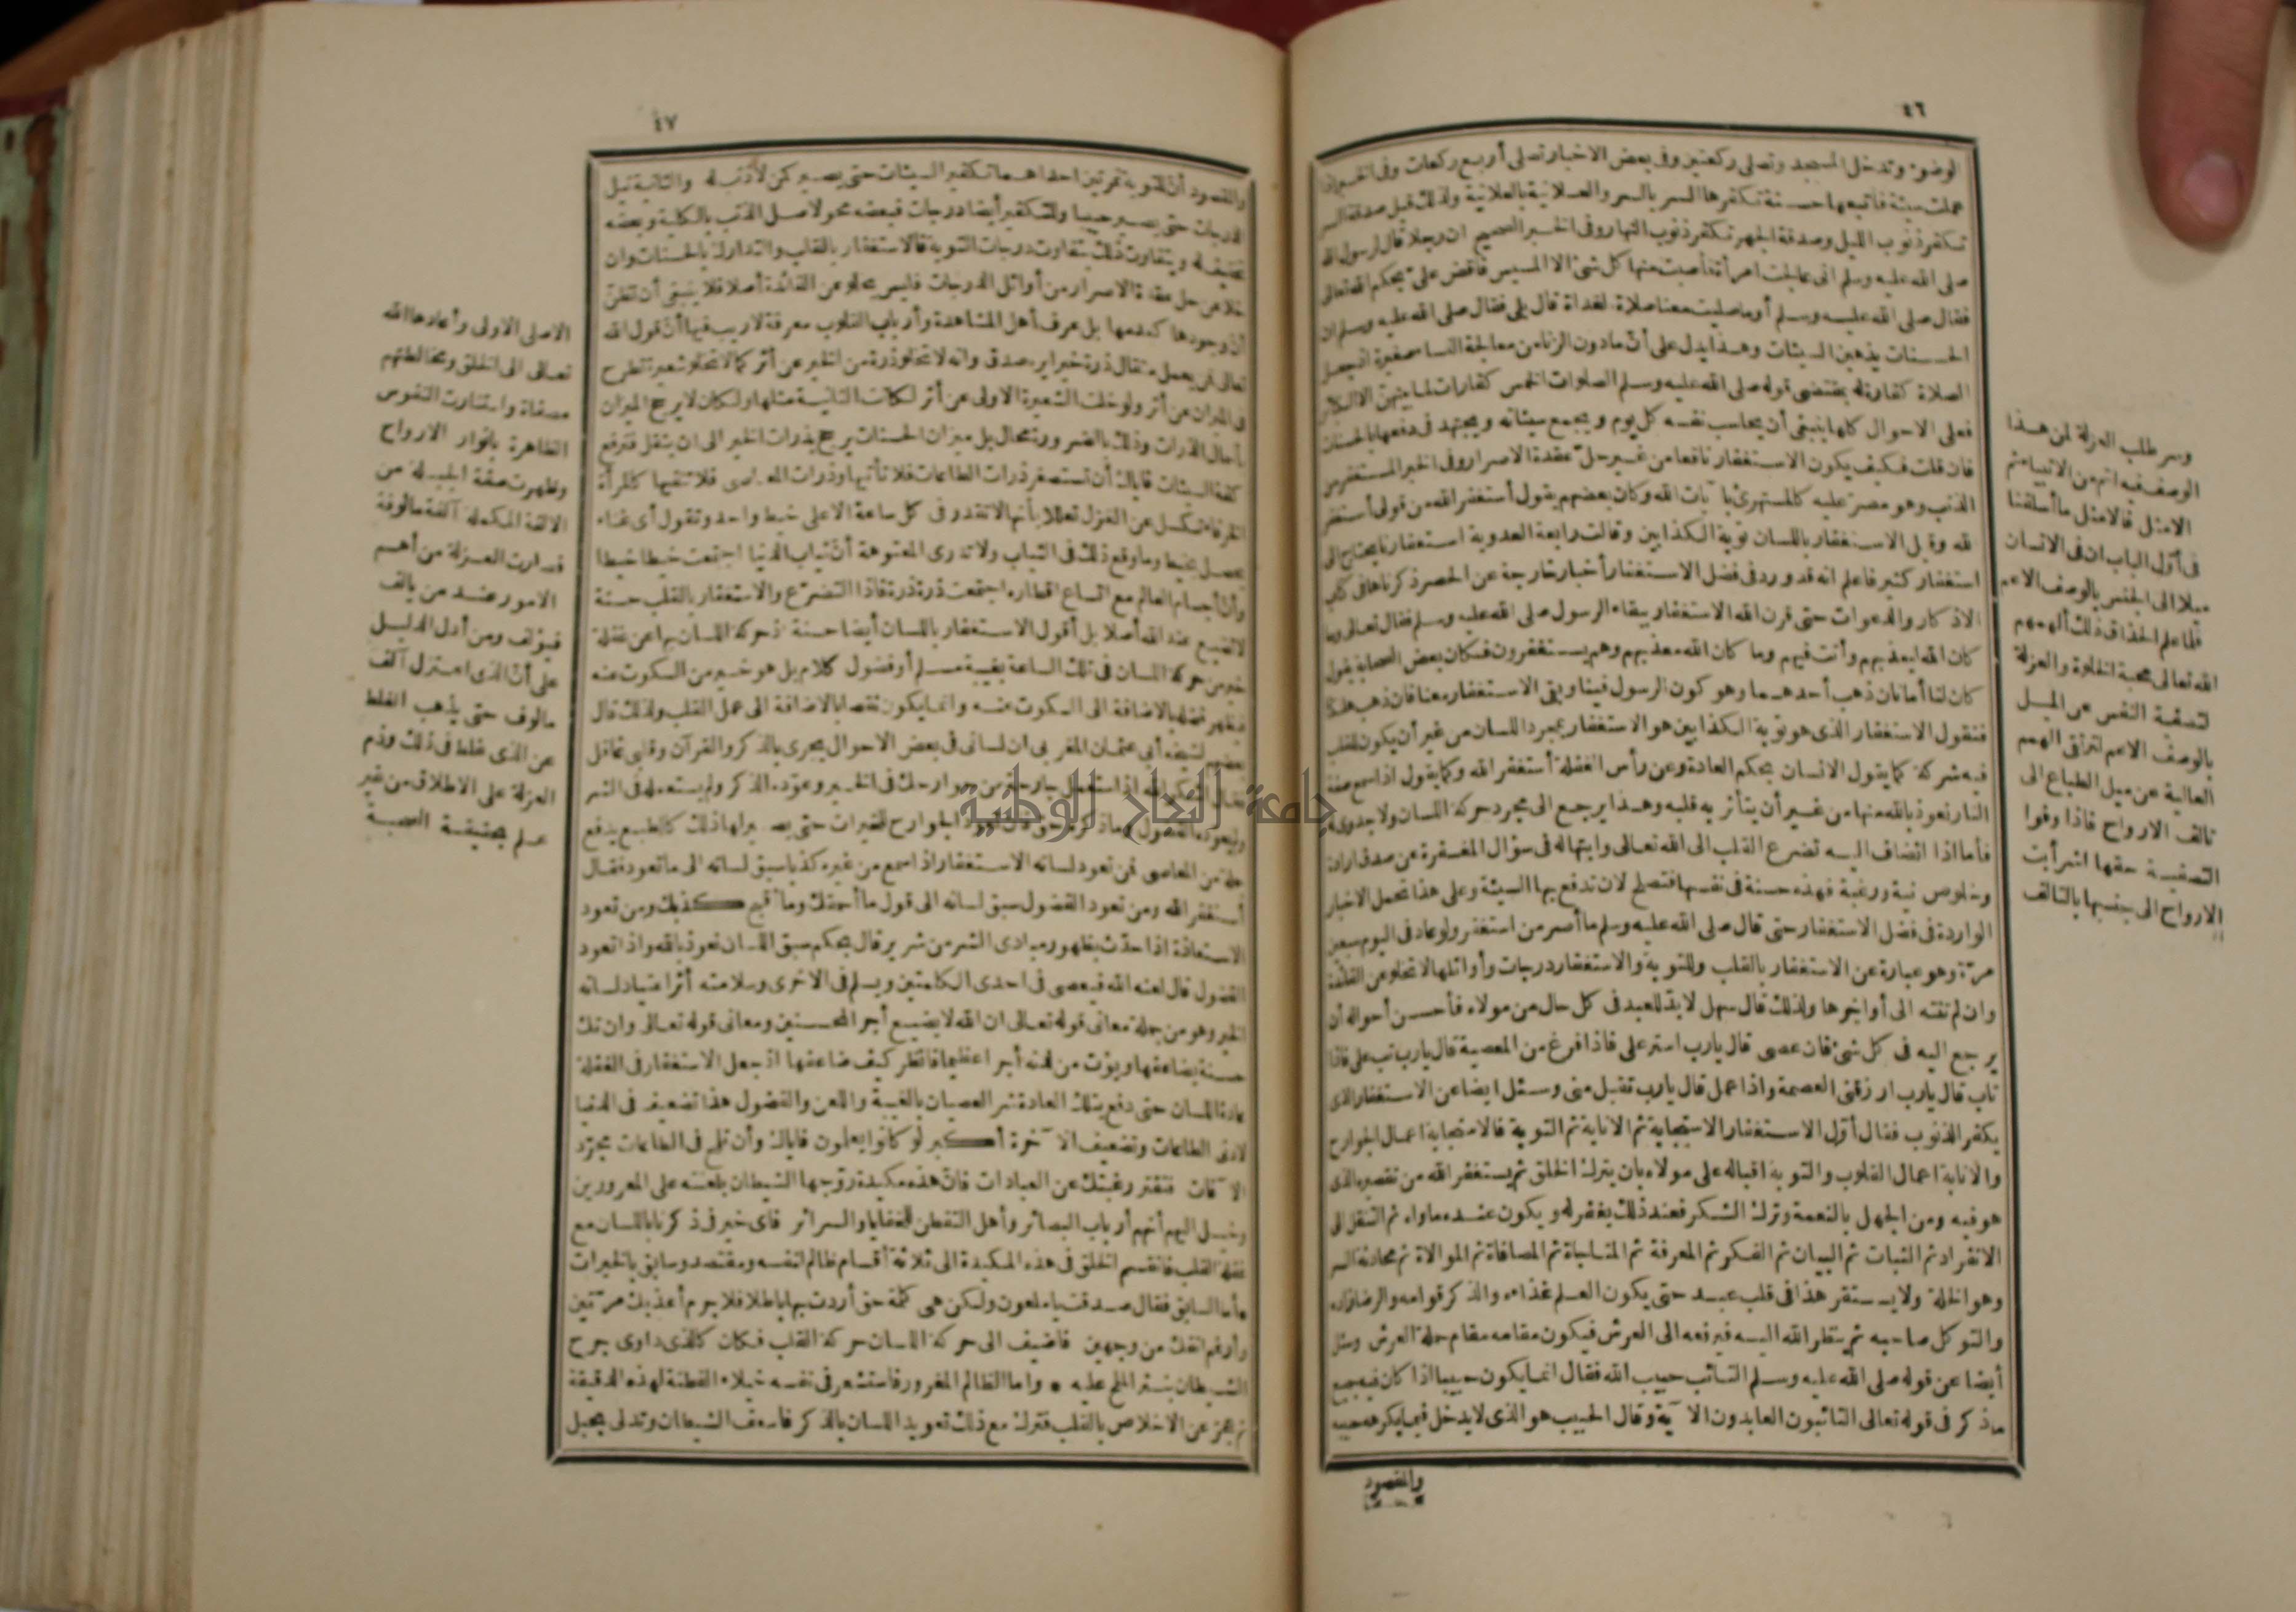 ٤٦
الوضوء وتدخل المسجد وتصلى ركعتين وفى بعض الاخبار تصلى أربع ركعات وفى الخبر اذا
عملت سيئة فأتبعها حسنة تكفرها السر بالسر والعلانية بالعلانية ولذلك قيل صدقة السر
تكفر ذنوب الليل وصدقة الجهر تكفر ذنوب النهار وفى الخبر الصحيح ان رجلا قال لرسول الله
صلى الله عليه وسلم انى عالجت امرأة فأصبت منها كل شئ الا المسيس فاقض علىّ بحكم الله تعالى
فقال صلى الله عليه وسلم أوما صليت معنا صلاة الغداة قال بلى فقال صلى الله عليه وسلم ان
الحسنات يذهبن السيئات وهذا يدل على أنّ مادون الزنا من معالجة النساء صغيرة اذ جعل
الصلاة كفارة له بمقتضى قوله صلى الله عليه وسلم الصلوات الخمس كفارات لما بينهنّ الا الكبائر
فعلى الاحوال كلها ينبغى أن يحاسب نفسه كل يوم ويجمع سيئاته ويجتهد فى دفعها بالحسنات
فان قلت فكيف يكون الاستغفار نافعا من غير حلّ عقدة الاصرار وفى الخبر المستغفر من
الذنب وهو مصرّ عليه كالمستهزئ بآيات الله وكان بعضهم يقول أستغفر الله من قولى أستغفر
الله وقيل الاستغفار باللسان توبة الكذابين وقالت رابعة العدوية استغفارنا يحتاج الى
استغفار كثير فاعلم انه قد ورد فى فضل الاستغفار أخبار خارجة عن الحصر ذكرناها فى كتاب
الاذكار والدعوات حتى قرن الله الاستغفار ببقاء الرسول صلى الله عليه وسلم فقال تعالى وما
كان الله ليعذبهم وأنت فيهم وما كان الله معذبهم وهم يستغفرون فكان بعض الصحابة يقول
كان لنا أمانان ذهب أحدهما وهو كون الرسول فينا وبقى الاستغفار معنا فان ذهب هلكنا
فنقول الاستغفار الذى هو توبة الكذابين هو الاستغفار بمجرد اللسان من غير أن يكون للقلب
فيه شركة كما يقول الانسان بحكم العادة وعن رأس الغفلة أستغفر الله وكما يقول اذا سمع صفة
النار نعوذ بالله منها من غير أن يتأثر به قلبه وهذا يرجع الى مجرد حركة اللسان ولا جدوى له
فأما اذا انضاف اليه تضرع القلب الى الله تعالى وابتهاله فى سؤال المغفرة عن صدق ارادة
وخلوص نية ورغبة فهذه حسنة فى نفسها فتصلح لان تدفع بها السيئة وعلى هذا تحمل الاخبار
الواردة فى فضل الاستغفار حتى قال صلى الله عليه وسلم ما أصر من استغفر ولو عاد فى اليوم سبعين
مرّة وهو عبارة عن الاستغفار بالقلب وللتوبة والاستغفار درجات وأوائلها لا تخلو عن الفائدة
وان لم تنته الى أواخرها ولذلك قال سهل لا بدّ للعبد فى كل حال من مولاه فأحسن أحواله أن
يرجع اليه فى كل شئ فان عصى قال يارب استر علىّ فاذا فرغ من المعصية قال يارب تب علىّ فاذا
تاب قال يارب ارزقنى العصمة واذا عمل قال يارب تقبل منى وسئل ايضا عن الاستغفار الذى
يكفر الذنوب فقال أوّل الاستغفار الاستجابة ثم الانابة ثم التوبة فالاستجابة اعمال الجوارح
والانابة اعمال القلوب والتوبة اقباله على مولاه بان يترك الخلق ثم يستغفر الله من تقصيره الذى
هو فيه ومن الجهل بالنعمة وترك الشكر فعند ذلك يغفر له ويكون عنده مأواه ثم التنقل الى
الانفراد ثم الثبات ثم البيان ثم الفكر ثم المعرفة ثم المناجاة ثم المصافاة ثم الموالاة ثم محادثة السر
وهو الخلة ولا يستقر هذا فى قلب عبد حتى يكون العلم غذاءه والذكر قوامه والرضا زاده
والتوكل صاحبه ثم ينظر الله اليه فيرفعه الى العرش فيكون مقامه مقام حملة العرش وسئل
أيضا عن قوله صلى الله عليه وسلم التائب حبيب الله فقال انما يكون حبيبا اذا كان فيه جميع
ماذكر فى قوله تعالى التائبون العابدون الآية وقال الحبيب هو الذى لا يدخل فيما يكرهه حبيبه
والمقصود
وسر طلب العزلة لمن هذا
الوصف فيه اتم من الانبياء ثم
الامثل فالامثل ما أسلفنا
فى أوّل الباب ان فى الانسان
ميلا الى الجنس بالوصف الاعم
فلما علم الحذاق ذلك ألهمهم
الله تعالى محبة الخلوة والعزلة
لتصفية النفس عن الميل
بالوصف الاعم لترتقى الهمم
العالية عن ميل الطباع الى
تألف الارواح فاذا وفوا
التصفية حقها اشرأبت
الارواح الى جنسها بالتألف
٤٧
والمقصود أنّ للتوبة ثمرتين احداهما تكفير السيئات حتى يصير كمن لا ذنب له والثانية نيل
الدرجات حتى يصير حبيبا وللتكفير أيضا درجات فبعضه محو لاصل الذنب بالكلية وبعضه
تخفيف له ويتفاوت ذلك بتفاوت درجات التوبة فالاستغفار بالقلب والتدارك بالحسنات وان
خلا عن حل عقدة الاصرار من أوائل الدرجات فليس يخلو عن الفائدة أصلا فلا ينبغى أن تظنّ
أن وجودها كعدمها بل عرف أهل المشاهدة وأرباب القلوب معرفة لا ريب فيها أنّ قول الله
تعالى فمن يعمل مثقال ذرة خيرا يره صدق وانه لا تخلو ذرة من الخير عن أثر كما لا تخلو شعيرة تطرح
فى الميزان عن أثر ولو خلت الشعيرة الاولى عن أثر لكانت الثانية مثلها ولكان لا يرجح الميزان
بأحمال الذرات وذلك بالضرورة محال بل ميزان الحسنات يرجح بذرات الخير الى ان يثقل فترفع
كفة السيئات فاياك أن تستصغر ذرات الطاعات فلا تأتيها وذرات المعاصى فلا تنقيها كالمرأة
الخرقاء تكسل عن الغزل تعللا بأنها لا تقدر فى كل ساعة الا على خيط واحد وتقول أى غناء
يحصل بخيط وما وقع ذلك فى الثياب ولا تدرى المعتوهة أنّ ثياب الدنيا اجتمعت خيطا خيطا
وأن أجسام العالم مع اتساع اقطاره اجتمعت ذرة ذرة فاذا التضرّع والاستغفار بالقلب حسنة
لا تضيع عند الله أصلا بل أقول الاستغفار باللسان أيضا حسنة اذ حركة اللسان بها عن غفلة
خير من حركة اللسان فى تلك الساعة بغيبة مسلم أو فضول كلام بل هو خير من السكوت عنه
فيظهر فضله بالاضافة الى السكوت عنه وانما يكون نقصانا بالاضافة الى عمل القلب ولذلك قال
بعضهم لشيخه أبى عثمان المغربى ان لسانى فى بعض الاحوال يجرى بالذكر والقرآن وقلبى غافل
فقال اشكر الله اذ استعمل جارحة من جوارحك فى الخير وعوّده الذكر ولم يستعمله فى الشر
ولم يعوّده الفضول وما ذكره حق فان تعوّد الجوارح للخيرات حتى يصير لها ذلك كالطبع يدفع
جملة من المعاصى فمن تعود لسانه الاستغفار اذا سمع من غيره كذبا سبق لسانه الى ما تعود فقال
أستغفر الله ومن تعود الفضول سبق لسانه الى قول ما أحمقك وما أقبح كذبك ومن تعود
الاستعاذة اذا حدّث بظهور مبادى الشر من شرير قال بحكم سبق اللسان نعوذ بالله واذا تعود
الفضول قال لعنه الله فيعصى فى احدى الكلمتين ويسلم فى الاخرى وسلامته أثر اعتياد لسانه
الخير وهو من جملة معانى قوله تعالى ان الله لا يضيع أجر المحسنين ومعانى قوله تعالى وان تك
حسنة يضاعفها ويؤت من لدنه أجرا عظيما فانظر كيف ضاعفها اذ جعل الاستغفار فى الغفلة
عادة اللسان حتى دفع بتلك العادة شر العصيان بالغيبة واللعن والفضول هذا تضعيف فى الدنيا
لادنى الطاعات وتضعيف الآخرة أكبر لو كانوا يعلمون فاياك وأن تلمح فى الطاعات مجرّد
الآفات فتفتر رغبتك عن العبادات فانّ هذه مكيدة روّجها الشيطان بلعنته على المغرورين
وخيل اليهم أنهم أرباب البصائر وأهل التفطن للخفايا والسرائر فأى خير فى ذكرنا باللسان مع
غفلة القلب فانقسم الخلق فى هذه المكيدة الى ثلاثة أقسام ظالم لنفسه ومقتصد وسابق بالخيرات
فأما السابق فقال صدقت يا ملعون ولكن هى كلمة حق أردت بها باطلا فلا جرم أعذبك مرّتين
وأرغم أنفك من وجهين فاضيف الى حركة اللسان حركة القلب فكان كالذى داوى جرح
الشيطان بنثر الملح عليه * واما الظالم المغرور فاستشعر فى نفسه خيلاء الفطنة لهذه الدقيقة
ثم عجز عن الاخلاص بالقلب فترك مع ذلك تعويد اللسان بالذكر فأسعف الشيطان وتدلى بحبل
الاصلى الاولى وأعادها الله
تعالى الى الخلق ومخالطتهم
مصفاة واستنارت النفوس
الطاهرة بانوار الارواح
وظهرت صفة الجبلة من
الالفة المكملة آلفة مألوفة
فصارت العزلة من أهم
الامور عند من يألف
فيؤلف ومن أدل الدليل
على أنّ الذى اعتزل آلف
مألوف حتى يذهب الغلط
عن الذى غلط فى ذلك وذم
العزلة على الاطلاق من غير
علم بحقيقة الصحبة
جامعة النجاح الوطنية